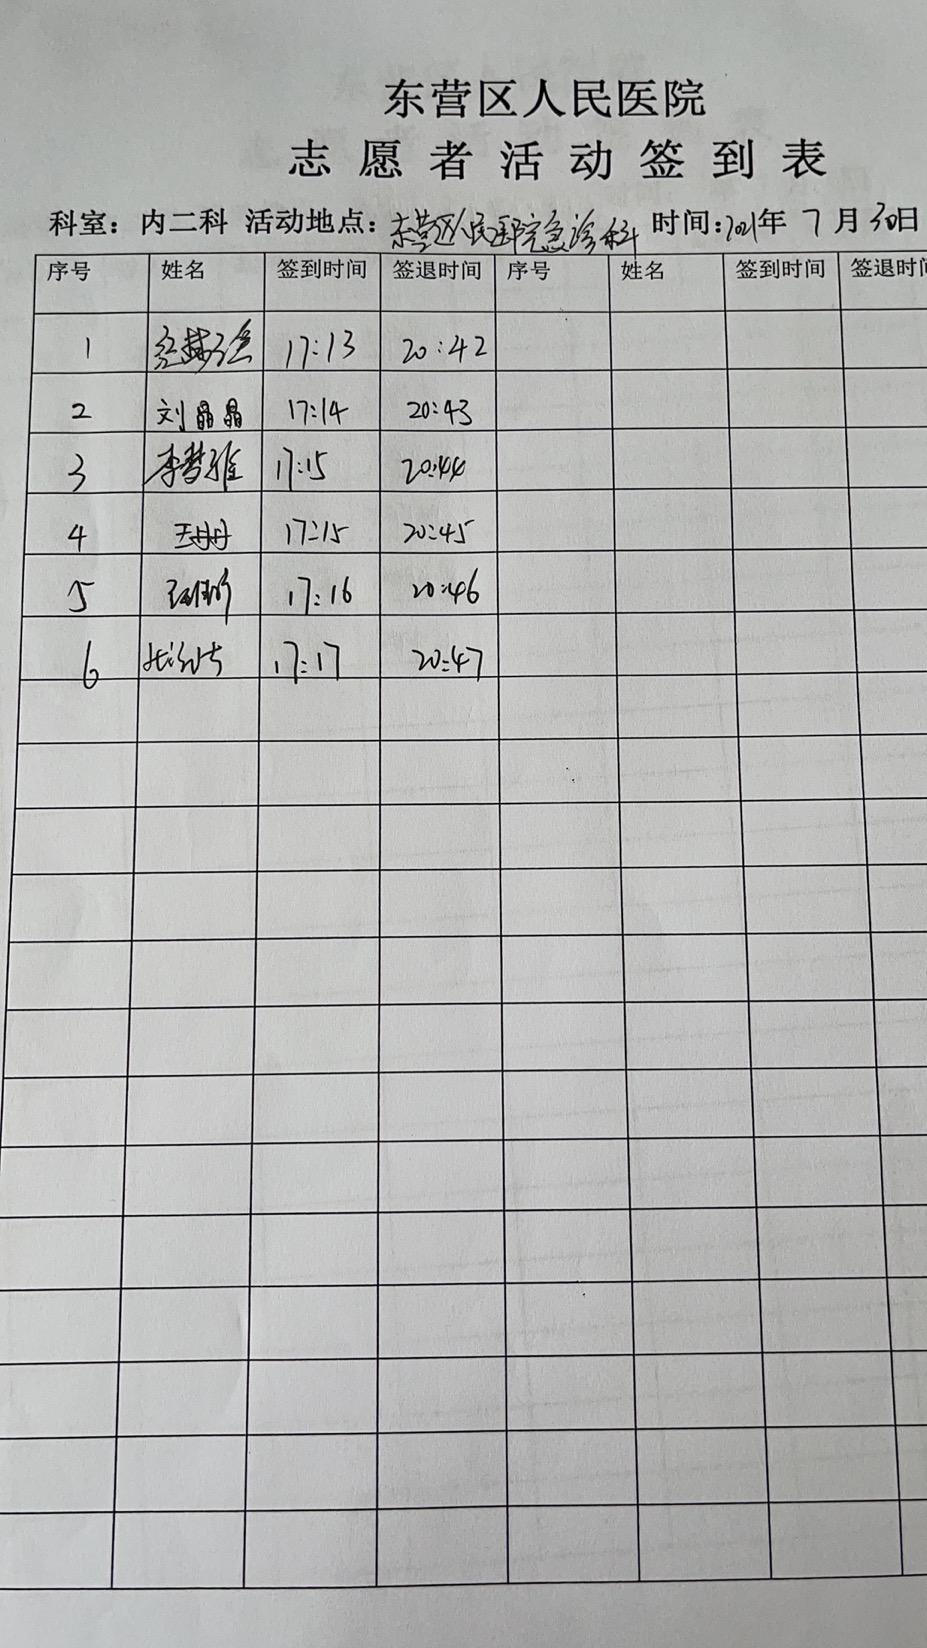 东营区人民医院
志愿者活动签到表
科室：内二科 活动地点：东营区人民医院急诊科 时间：2021年 7月30日
序号 姓名 签到时间 签退时间 序号 姓名 签到时间 签退时间
1 17:13 20:42
2 刘晶晶 17:14 20:43
3 李梦雅 17:15 20:44
4 王丹丹 17:15 20:45
5 17:16 20:46
6 17:17 20:47